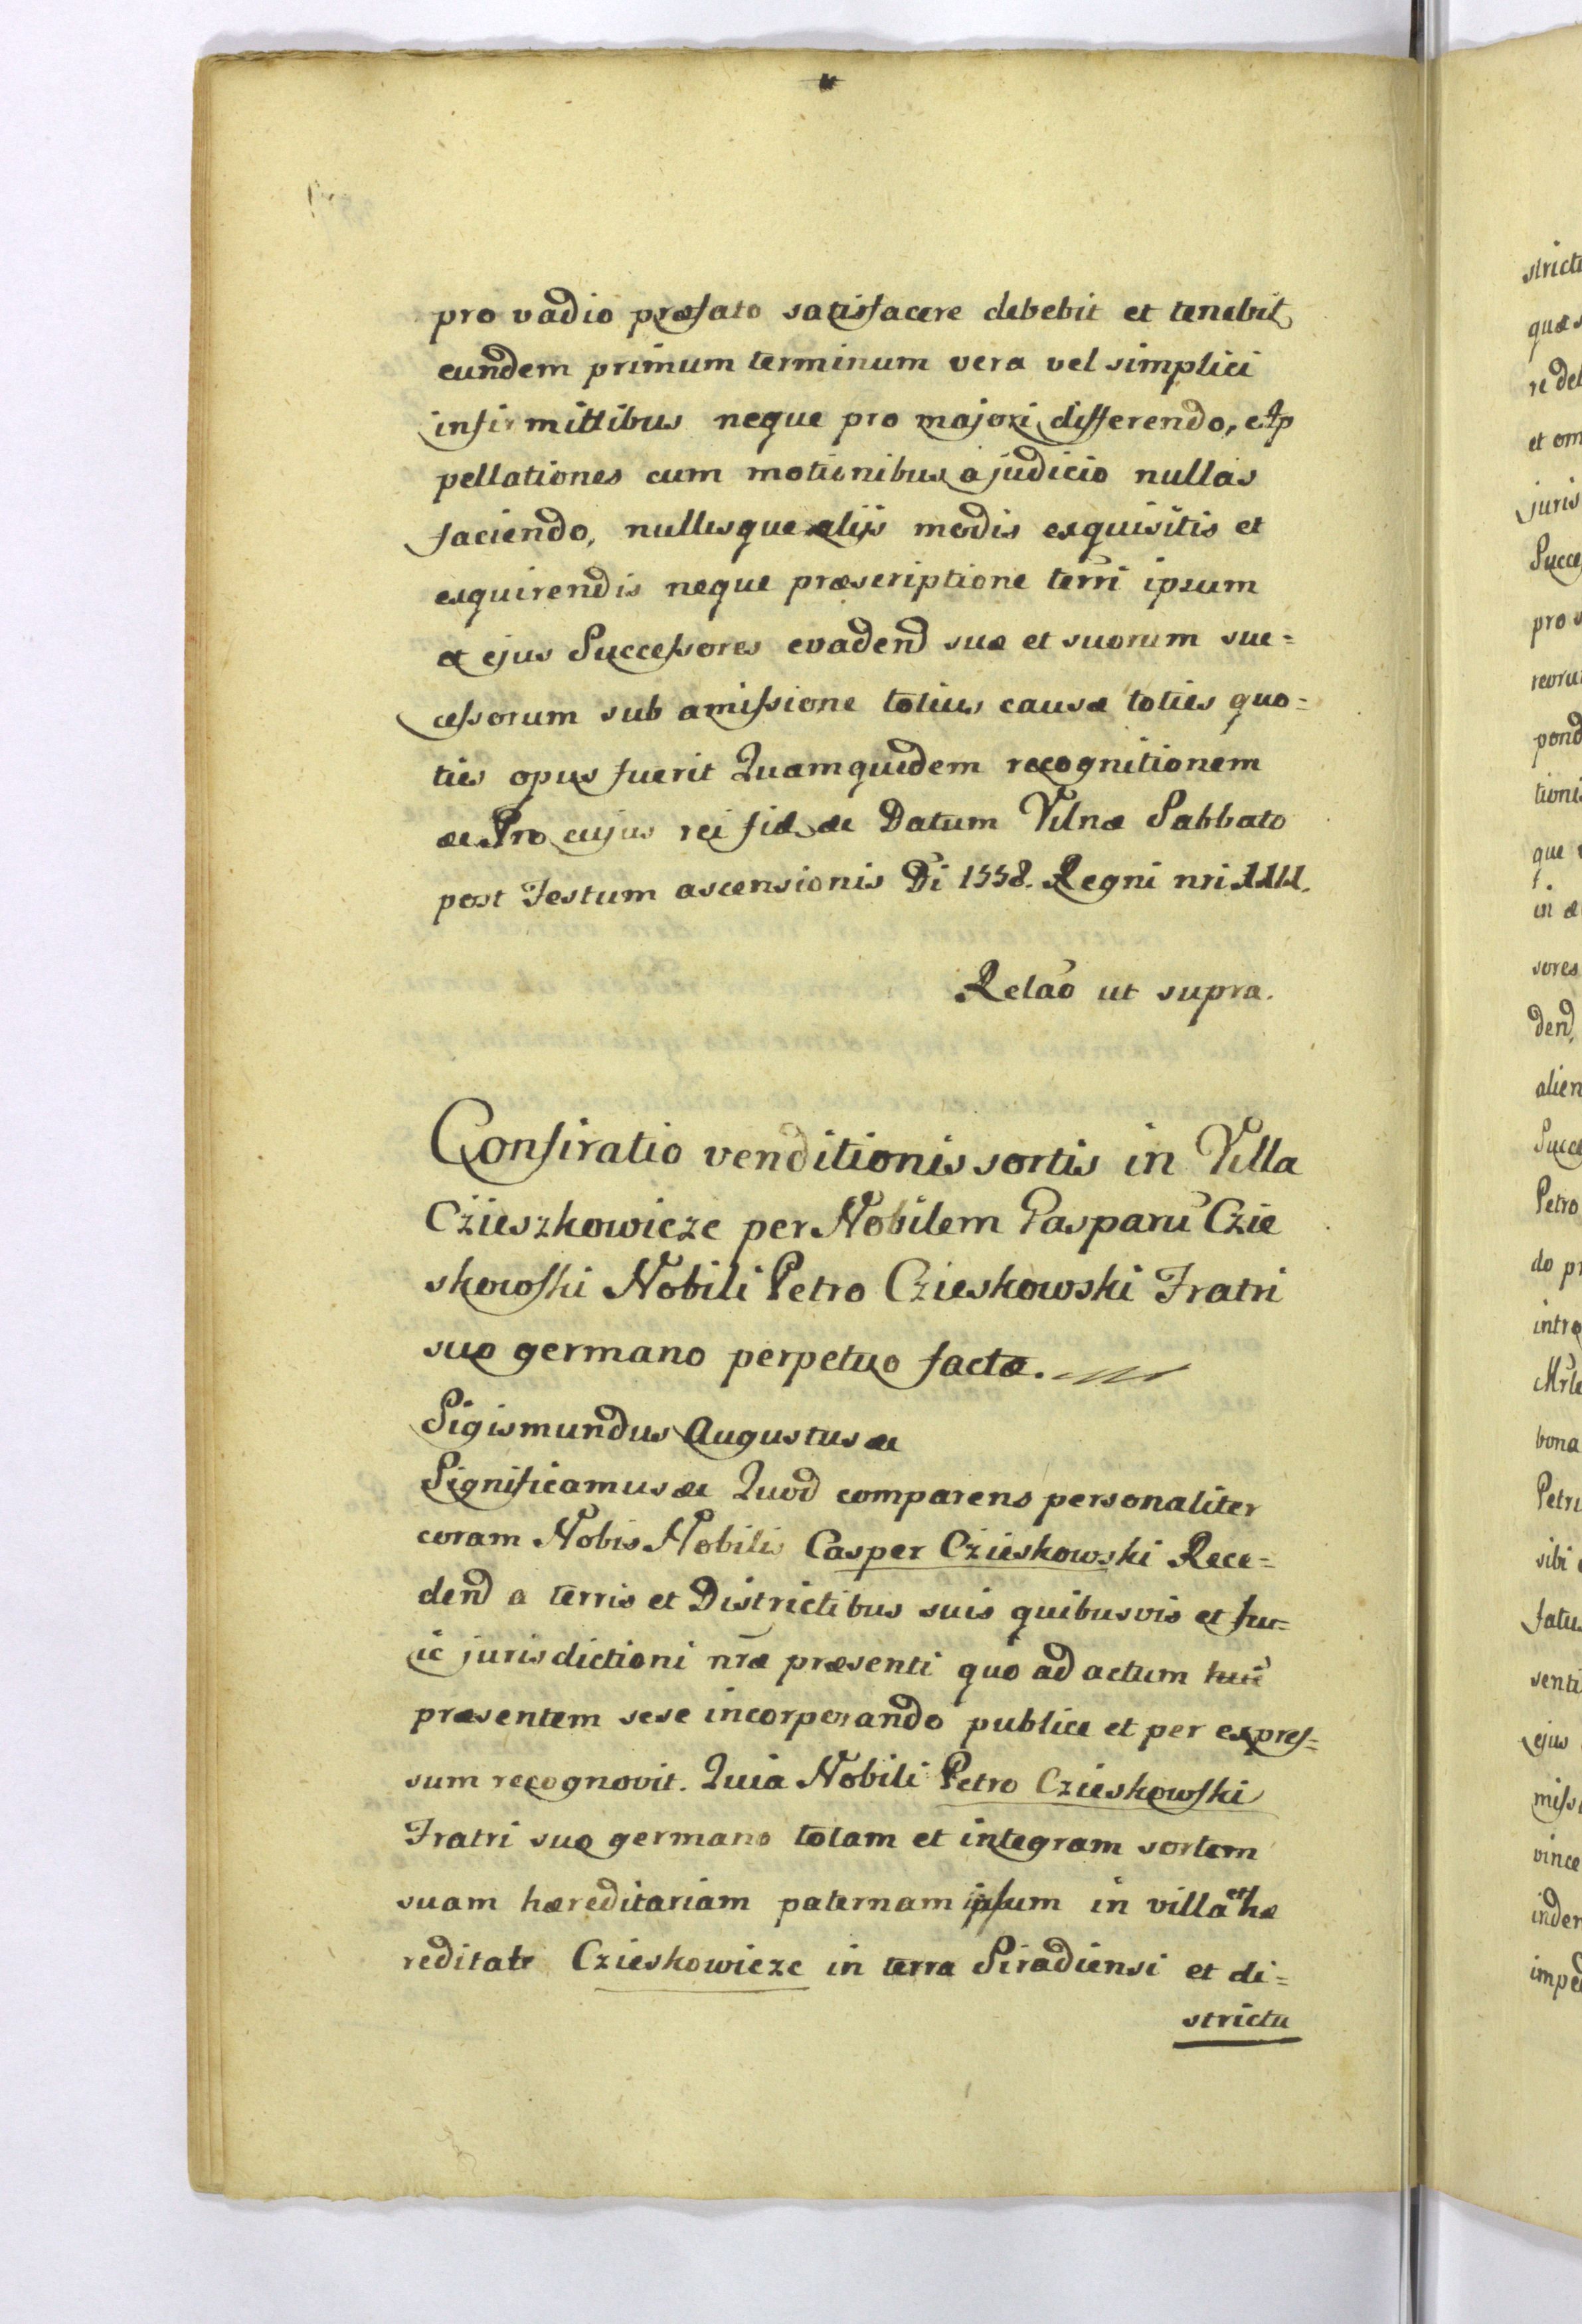 pro vadio præfato satisfacere debebit et tenebit
eundem primum terminum vera vel simplici
infirmittibus neque pro majori differendo, Ap
pellationes cum motionibus a judicio nullas
faciendo, nullisque alijs modis exquisitis et
exquirendis neque præscriptione terrī ipsum
et ejus Successores evadend suæ et suorum suc=
cessorum sub amissione totius causæ toties quo=
ties opus fuerit Quamquidem recognitionem
æc Pro cujus rei fid æc Datum Vilnæ Sabbato
post Festum ascensionis Di 1558. Regni nri
Relao ut supra.
Consiratio venditionis sortis in Villa
Czieszkowicze per Nobilem Gasparū Czie
skowski Nobili Petro Czieskowski Fratri
suo germano perpetuo factæ.
Sigismundus Augustus æc
Significamus æc Quod comparens personaliter
coram Nobis Nobilis Casper Czieskowski Rece=
dend a terris et Districtibus suis quibusvis et hu=
ic jurisdictioni nræ præsenti quo ad actum huic
præsentem sese incorporando publice et per expres=
sum recognovit. Quia Nobili Petro Czieskowski
Fratri suo germano totam et integram sortem
suam hæreditariam paternam ipsum in villa et hæ
reditate Czieskowicze in terra Siradiensi et di=
strictu
stricti
quæ
re del
et om
juris
Succe
pro v
reoru
pond
tioni
que
in æ
sores
dend,
alien
Succe
Petro
do pr
intro
bona
Petri
sibi
fatus
senti
ejus
missi
vince
inder
impe